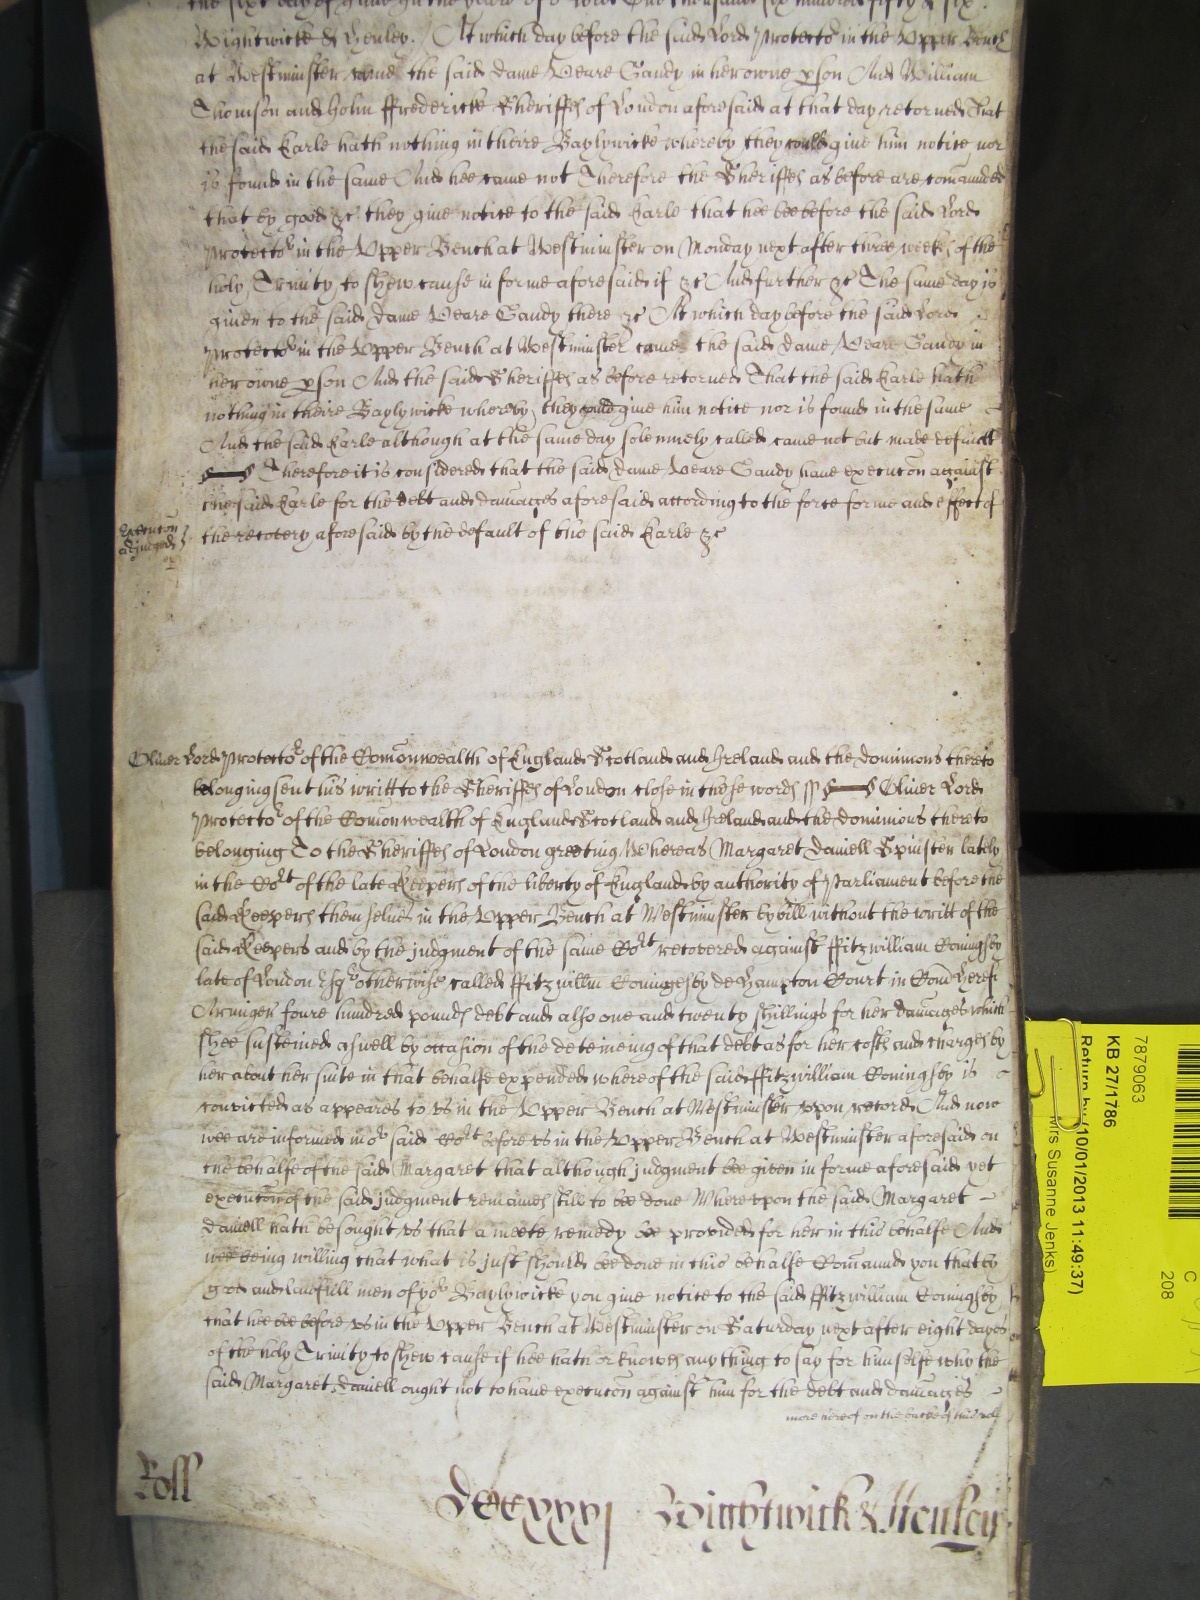 the sixt day of June in the yeare of o Lord One thousand six hundred fifty & six.
Wightwicke & Henley. / At which day before the said Lord Protector in the Upper Bench
at Westminster came the said Dame Veare Gandy in her owne pson And William
Thomson and John Ffredericke Sheriffes of London aforesaid at that day retorned That
the said Earle hath nothing in theire Baylywicke whereby they could give him notice nor
is found in the same And hee came not Therefore the Sheriffes as before are comanded
that by good &c they give notice to the said Earle that hee bee before the said Lord
Protector in the Upper Bench at Westminster on Monday next after three weekes of the
holy Trinity to shew cause in forme aforesaid if &c And further &c The same day is
given to the said Dame Veare Gandy there &c At which day before the said Lord
Protector in the Upper Bench at Westminster came the said Dame Veare Gandy in
her owne pson And the said Sheriffes as before retorned That the said Earle hath
nothing in theire Baylywicke whereby they could give him notice nor is found in the same
And the said Earle although at the same day solemnely called came not but made default
Therefore it is considered that the said Dame Veare Gandy have execucon against
the said Earle for the debt and damages aforesaid according to the force forme and effect of
Execucon
adjudged
the recovery aforesaid by the default of the said Earle &c
Oliver Lord Protector of the Comonwealth of England Scotland and Ireland and the dominions thereto
belonging sent his writt to the Sheriffes of London close in these words ss Oliver Lord
Protector of the Comonwealth of England Scotland and Ireland and the dominions thereto
belonging To the Sheriffes of London greeting Whereas Margaret Daniell Spinster lately
in the Cort of the late Keepers of the liberty of England by authority of Parliament before the
said Keepers themselves in the Upper Bench at Westminster by bill without the writt of the
said Keepers and by the judgment of the same Cort recovered against Ffitzwilliam Coningsby
late of London Esqr otherwise called Ffitzwillm Coningesby de Hampton Court in Com Heref
Armiger foure hundred pounds debt and also one and twenty shillings for her damages which
shee susteined aswell by occasion of the deteineing of that debt as for her costs and charges by
her about her suite in that behalfe expended whereof the said Ffitzwilliam Coningsby is
convicted as appeares to us in the Upper Bench at Westminster upon record And now
wee are informed in or said Cort before us in the Upper Bench at Westminster aforesaid on
the behalfe of the said Margaret that although judgment bee given in forme aforesaid yet
execucon of the said judgment remaines still to bee done Whereupon the said Margaret
Daniell hath besought us that a meete remedy bee provided for her in this behalfe And
wee being willing that what is just should bee done in this behalfe Comaund you that by
good and lawfull men of yor Baylywicke you give notice to the said Ffitzwilliam Coningsby
that hee bee before us in the Upper Bench at Westminster on Saturday next after eight dayes
of the holy Trinity to shew cause if hee hath or knowes any thing to say for himselfe why the
said Margaret Daniell ought not to have execucon against him for the debt and damages
more hereof on the backe of this roll
Roll
Dccxxxj Wightwick & Henley
7879063
KB 27/1786
Return by (10/01/2013 11:49:37)
Mrs Susanne Jenks)
C
208